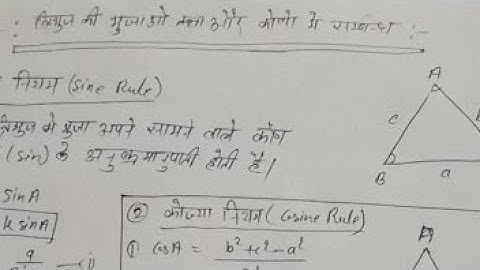 -: त्रिभुज की भुजाओ तथा और कोणो मे सम्बन्ध :-
नियम (sine Rule)
त्रिभुज मे भुजा अपने सामने वाले कोण
(sin) के अनुक्रमानुपाती होती है।
A
c
B
a
sinA
k sinA
a
(i)
② कोज्या नियम (Cosine Rule)
① cosA = b²+c²-a²
A